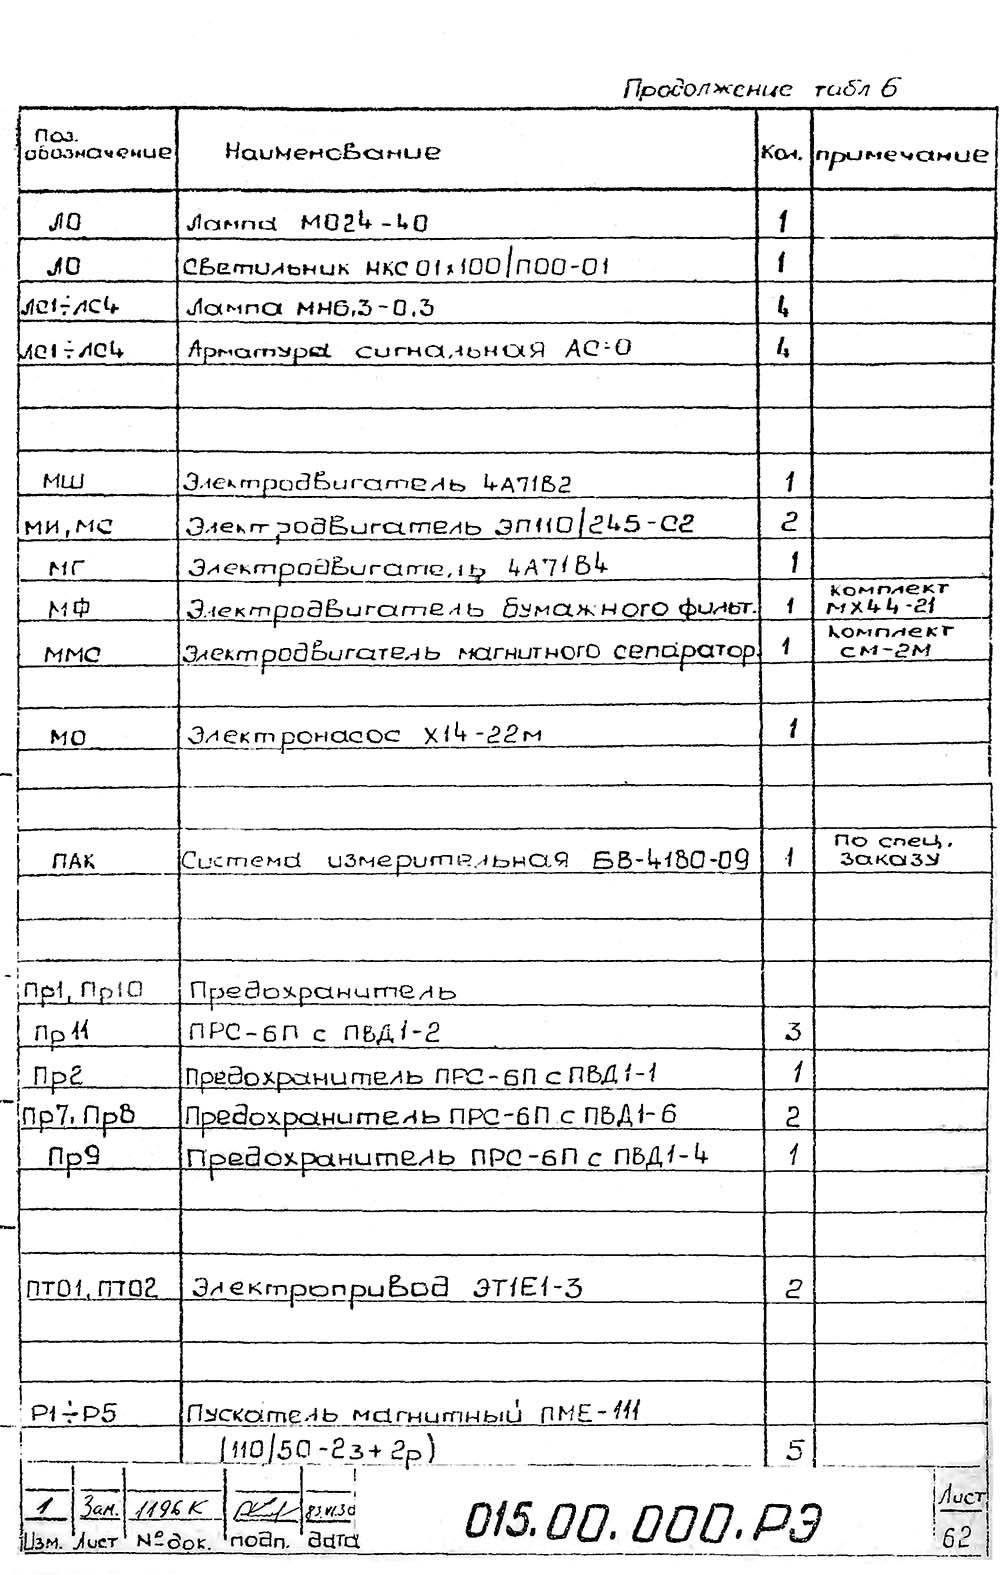 Продолжение табл 6
Поз. обозначение Наименование Кол. примечание
ЛО Лампа МО24-40 1
ЛО Светильник НКС01х100/П00-01 1
ЛС1÷ЛС4 Лампа МН6,3-0,3 4
ЛС1÷ЛС4 Арматура сигнальная АС-0 4
МШ Электродвигатель 4А71В2 1
МИ, МС Электродвигатель ЭП110/245-С2 2
МГ Электродвигатель 4А71В4 1
МФ Электродвигатель бумажного фильт. 1 комплект МХ44-21
ММС Электродвигатель магнитного сепаратор. 1 комплект СМ-2М
МО Электронасос Х14-22м 1
ПАК Система измерительная БВ-4180-09 1 По спец. заказу
Пр1, Пр10 Предохранитель
Пр11 ПРС-6П с ПВД1-2 3
Пр2 Предохранитель ПРС-6П с ПВД1-1 1
Пр7, Пр8 Предохранитель ПРС-6П с ПВД1-6 2
Пр9 Предохранитель ПРС-6П с ПВД1-4 1
ПТО1, ПТО2 Электропривод ЭТ1Е1-3 2
Р1÷Р5 Пускатель магнитный ПМЕ-111
(110/50-2з+2р) 5
1 Зам. 1196К
Изм. Лист № док. подп. дата
015.00.000.РЭ
Лист
62